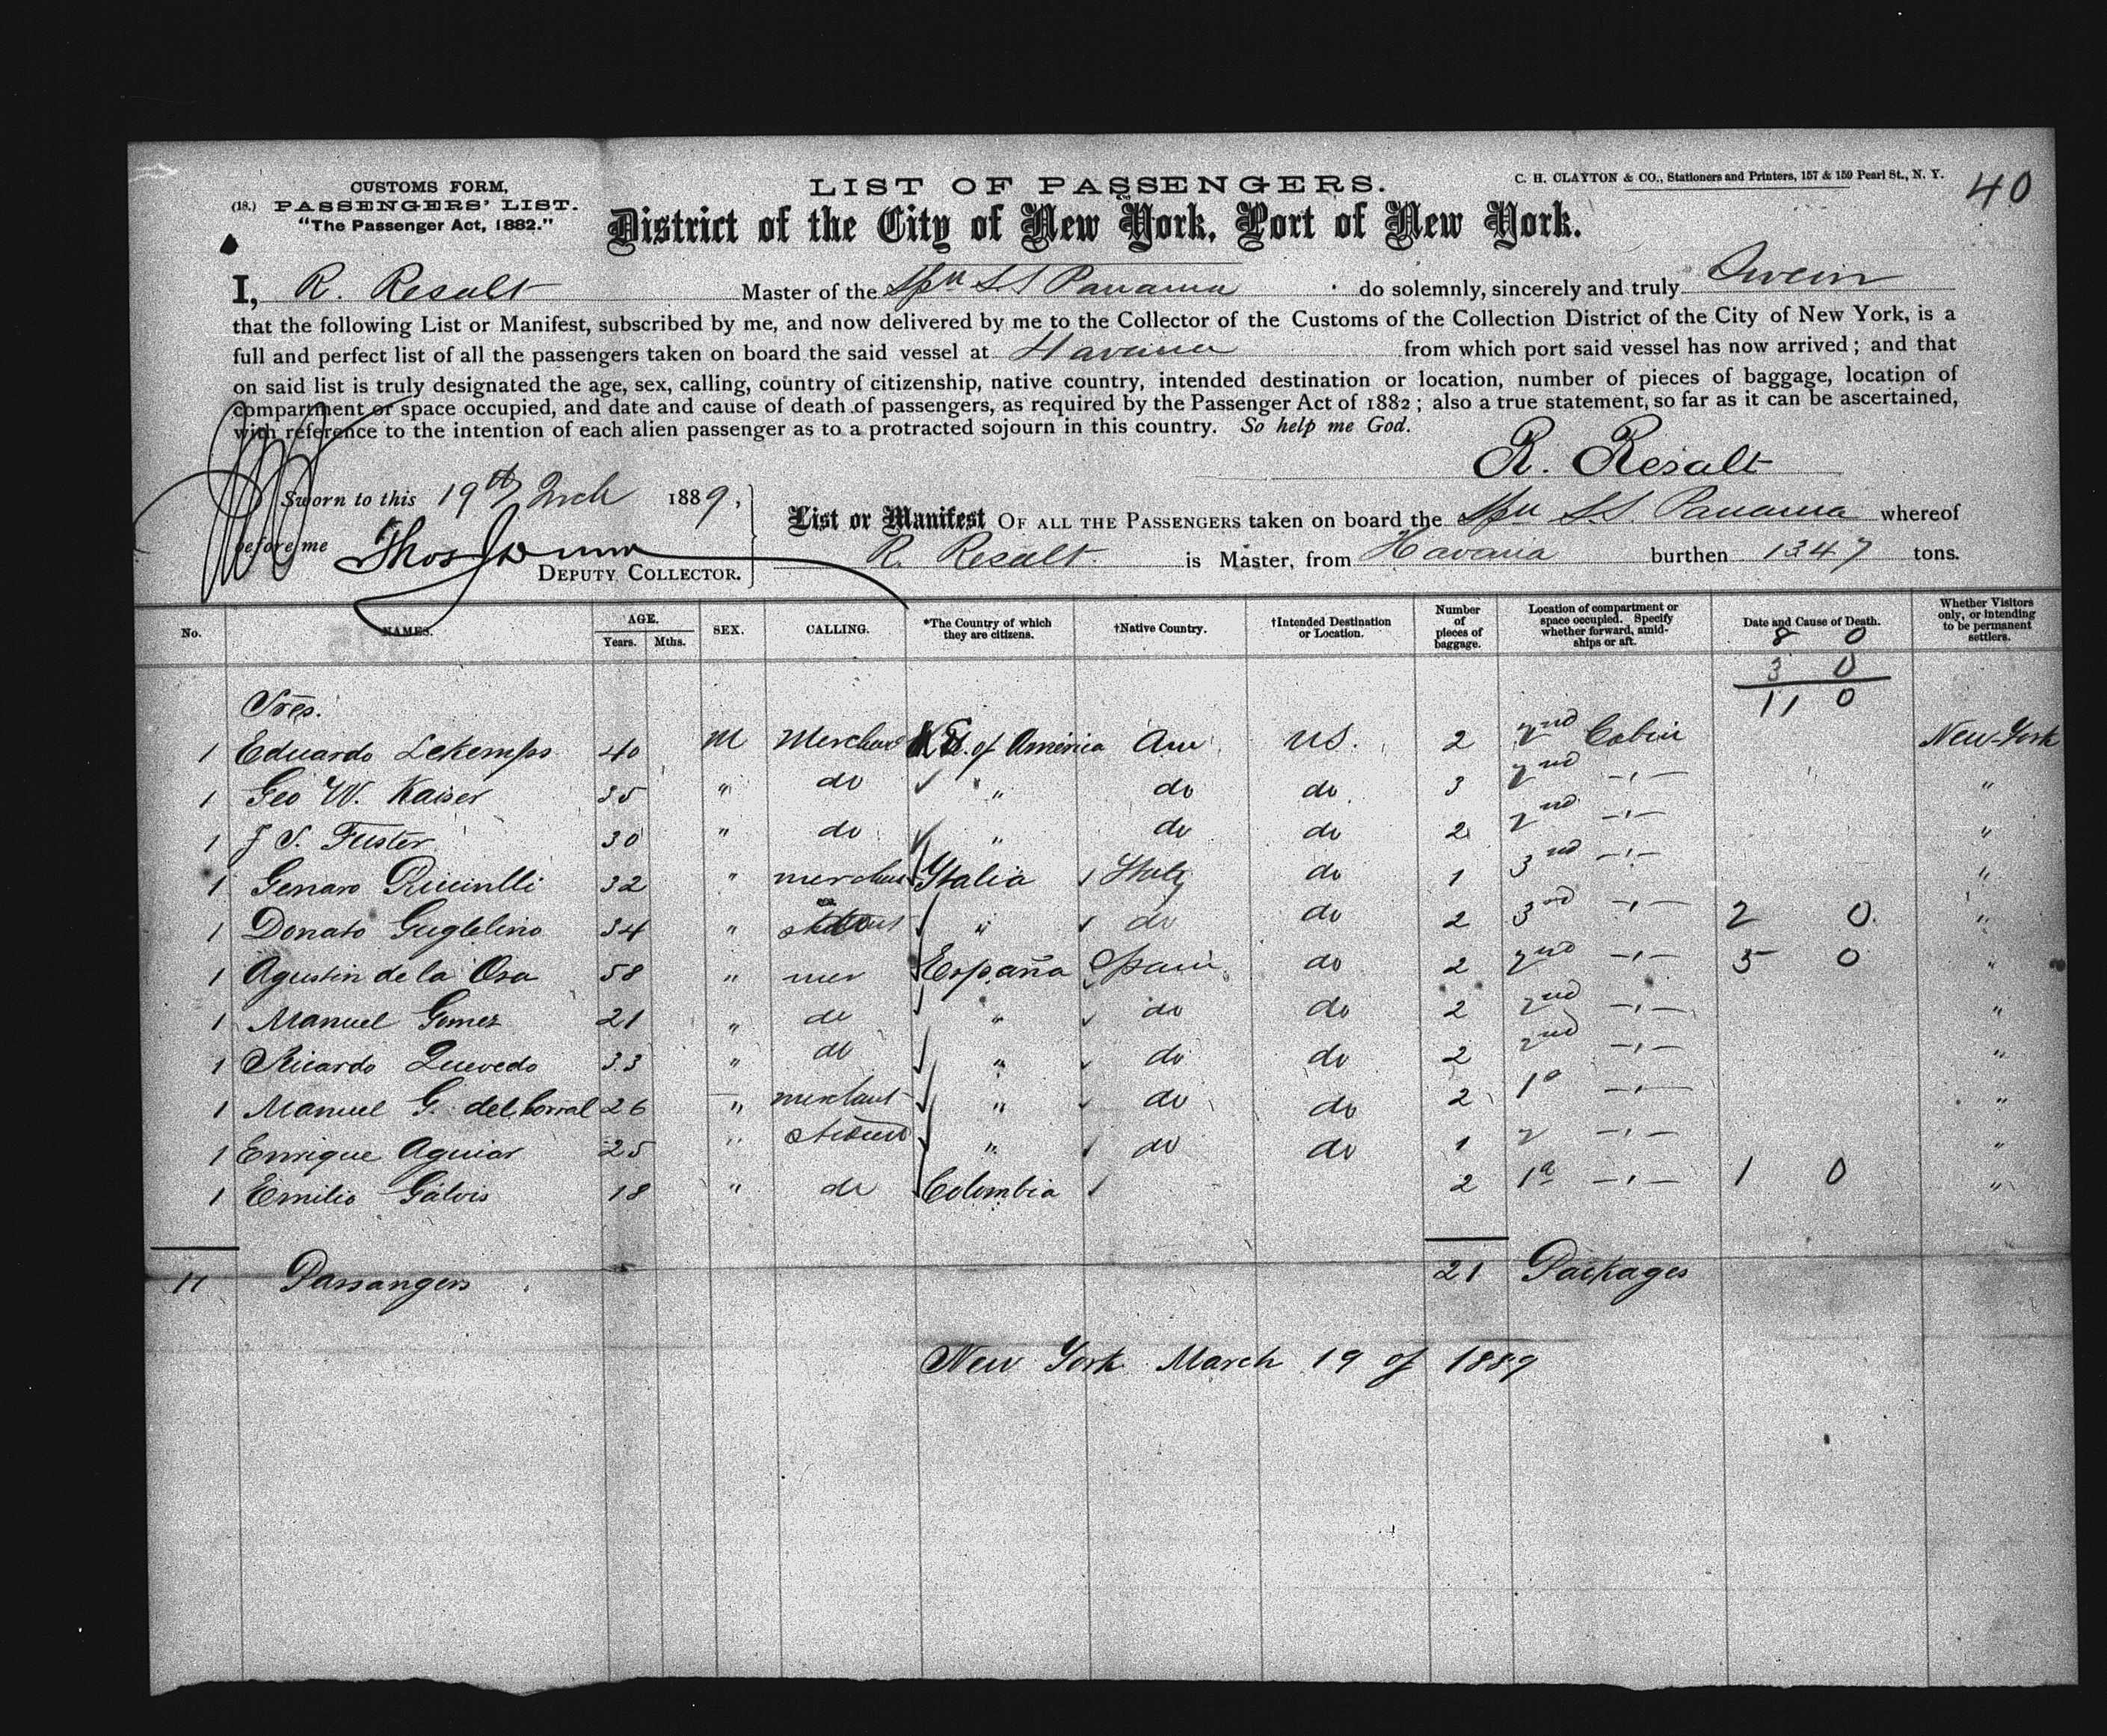 CUSTOMS FORM,
(18.) PASSENGERS' LIST.
"The Passenger Act, 1882."
LIST OF PASSENGERS.
C. H. CLAYTON & CO., Stationers and Printers, 157 & 159 Pearl St., N. Y.
40
District of the City of New York, Port of New York.
I, R. Resalt Master of the Spn SS Panama do solemnly, sincerely and truly Swear
that the following List or Manifest, subscribed by me, and now delivered by me to the Collector of the Customs of the Collection District of the City of New York, is a
full and perfect list of all the passengers taken on board the said vessel at Havana from which port said vessel has now arrived; and that
on said list is truly designated the age, sex, calling, country of citizenship, native country, intended destination or location, number of pieces of baggage, location of
compartment or space occupied, and date and cause of death of passengers, as required by the Passenger Act of 1882; also a true statement, so far as it can be ascertained,
with reference to the intention of each alien passenger as to a protracted sojourn in this country. So help me God.
R. Resalt
Sworn to this 19th Mch 1889,
before me Thos
DEPUTY COLLECTOR.
List or Manifest OF ALL THE PASSENGERS taken on board the Spn S.S. Panama whereof
R. Resalt. is Master, from Havana burthen 1347 tons.
No. NAMES. AGE. Years. Mths. SEX. CALLING. *The Country of which they are citizens. †Native Country. †Intended Destination or Location. Number of pieces of baggage. Location of compartment or space occupied. Specify whether forward, amidships or aft. Date and Cause of Death. Whether Visitors only, or intending to be permanent settlers.
8 0
3 0
11 0
Sres.
1 Eduardo Lekemps 40 M Merchant of America Am US. 2 2nd Cabin New-York
1 Geo W. Kaiser 35 " do " do do 3 2nd -"- "
1 J S. Fuster 30 " do " do do 2 2nd -"- "
1 Genaro 32 " merchant Italia Italy do 1 3rd -"- "
1 Donato Guglelino 34 " " do do 2 3rd -"- 2 0 "
1 Agustin de la Osa 58 " mer España Spain do 2 2nd -"- 5 0 "
1 Manuel Gomez 21 " do " do do 2 2nd -"- "
1 Ricardo Quevedo 33 " do " do do 2 2nd -"- "
1 Manuel G. del Corral 26 " merchant " do do 2 1a -"- "
1 Enrique Aguiar 25 " " do do 1 2 -"- "
1 Emilio Galvis 18 " do Colombia 2 1a -"- 1 0 "
11 Passangers 21 Packages
New York March 19 of 1889